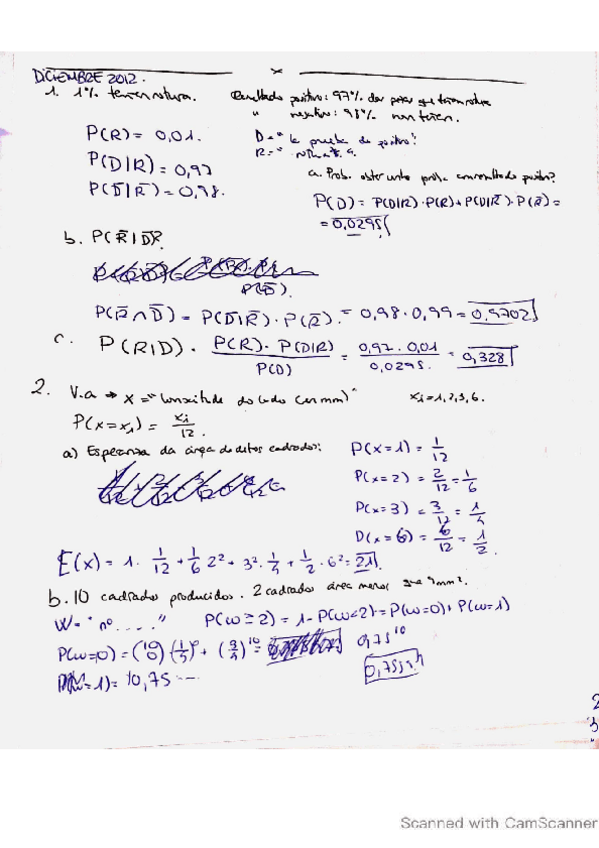 DICIEMBRE 2012.
1. 1% tienen rotura. Resultado positivo: 97% das pezas que teñen rotura
" negativo: 98% non teñen.
P(R) = 0,01.
P(D|R) = 0,97
P(D̄|R̄) = 0,98.
D = " la prueba da positivo"
R =
a. Prob. obter unha peza con resultado positivo?
P(D) = P(D|R)·P(R) + P(D|R̄)·P(R̄) =
= 0,0295
b. P(R̄|D̄).
P(D̄).
P(R̄∩D̄) = P(D̄|R̄)·P(R̄). = 0,98·0,99 = 0,9702
c. P(R|D). P(R)·P(D|R) / P(D) = 0,97·0,01 / 0,0295. = 0,328
2. V.a → X = "lonxitude do lado (en mm)" xi = 1,2,3,6.
P(X=x1) = xi/12.
a) Esperanza da área de ditos cadrados:
P(X=1) = 1/12
P(X=2) = 2/12 = 1/6
P(X=3) = 3/12 = 1/4
P(X=6) = 6/12 = 1/2.
E(X) = 1·1/12 + 1/6 2² + 3²·1/4 + 1/2·6² = 21
b. 10 cadrados producidos. 2 cadrados área menor que 9mm².
W = " nº ....." P(W≥2) = 1-P(W<2) = P(W=0) + P(W=1)
P(W=0) = (10 0) (1/4)⁰ + (3/4)¹⁰ = 0,75¹⁰
P(W=1) = 10,75 ---
Scanned with CamScanner